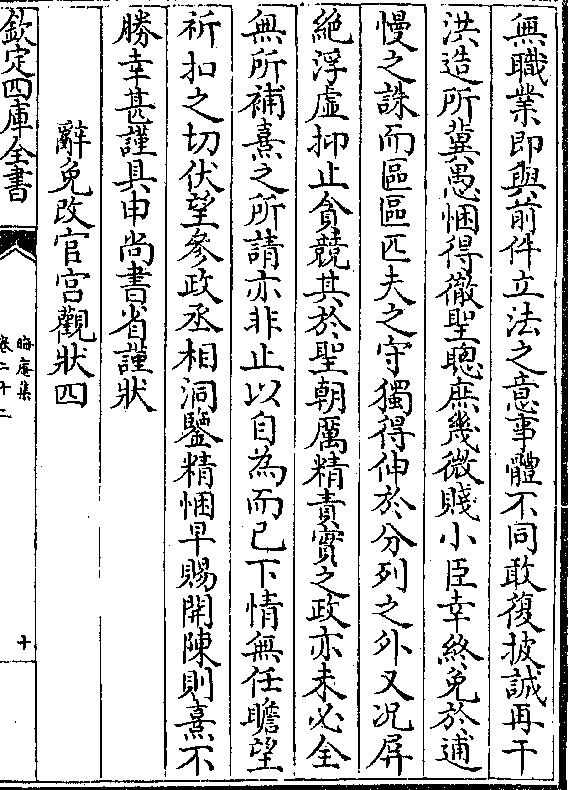 無職業即與前件立法之意事體不同敢復披誠再干
洪造所冀愚悃得徹聖聰庶幾微賤小臣幸終免於逋
慢之誅而區區匹夫之守獨得伸於分列之外又況屏
絶浮虚抑止貪競其於聖朝厲精責實之政亦未必全
無所補熹之所請亦非止以自為而已下情無任瞻望
祈扣之切伏望參政丞相洞鑒精悃早賜開陳則熹不
勝幸甚謹具申尚書省謹狀
辭免改官宫觀狀四
欽定四庫全書
晦庵集
卷二十二
十